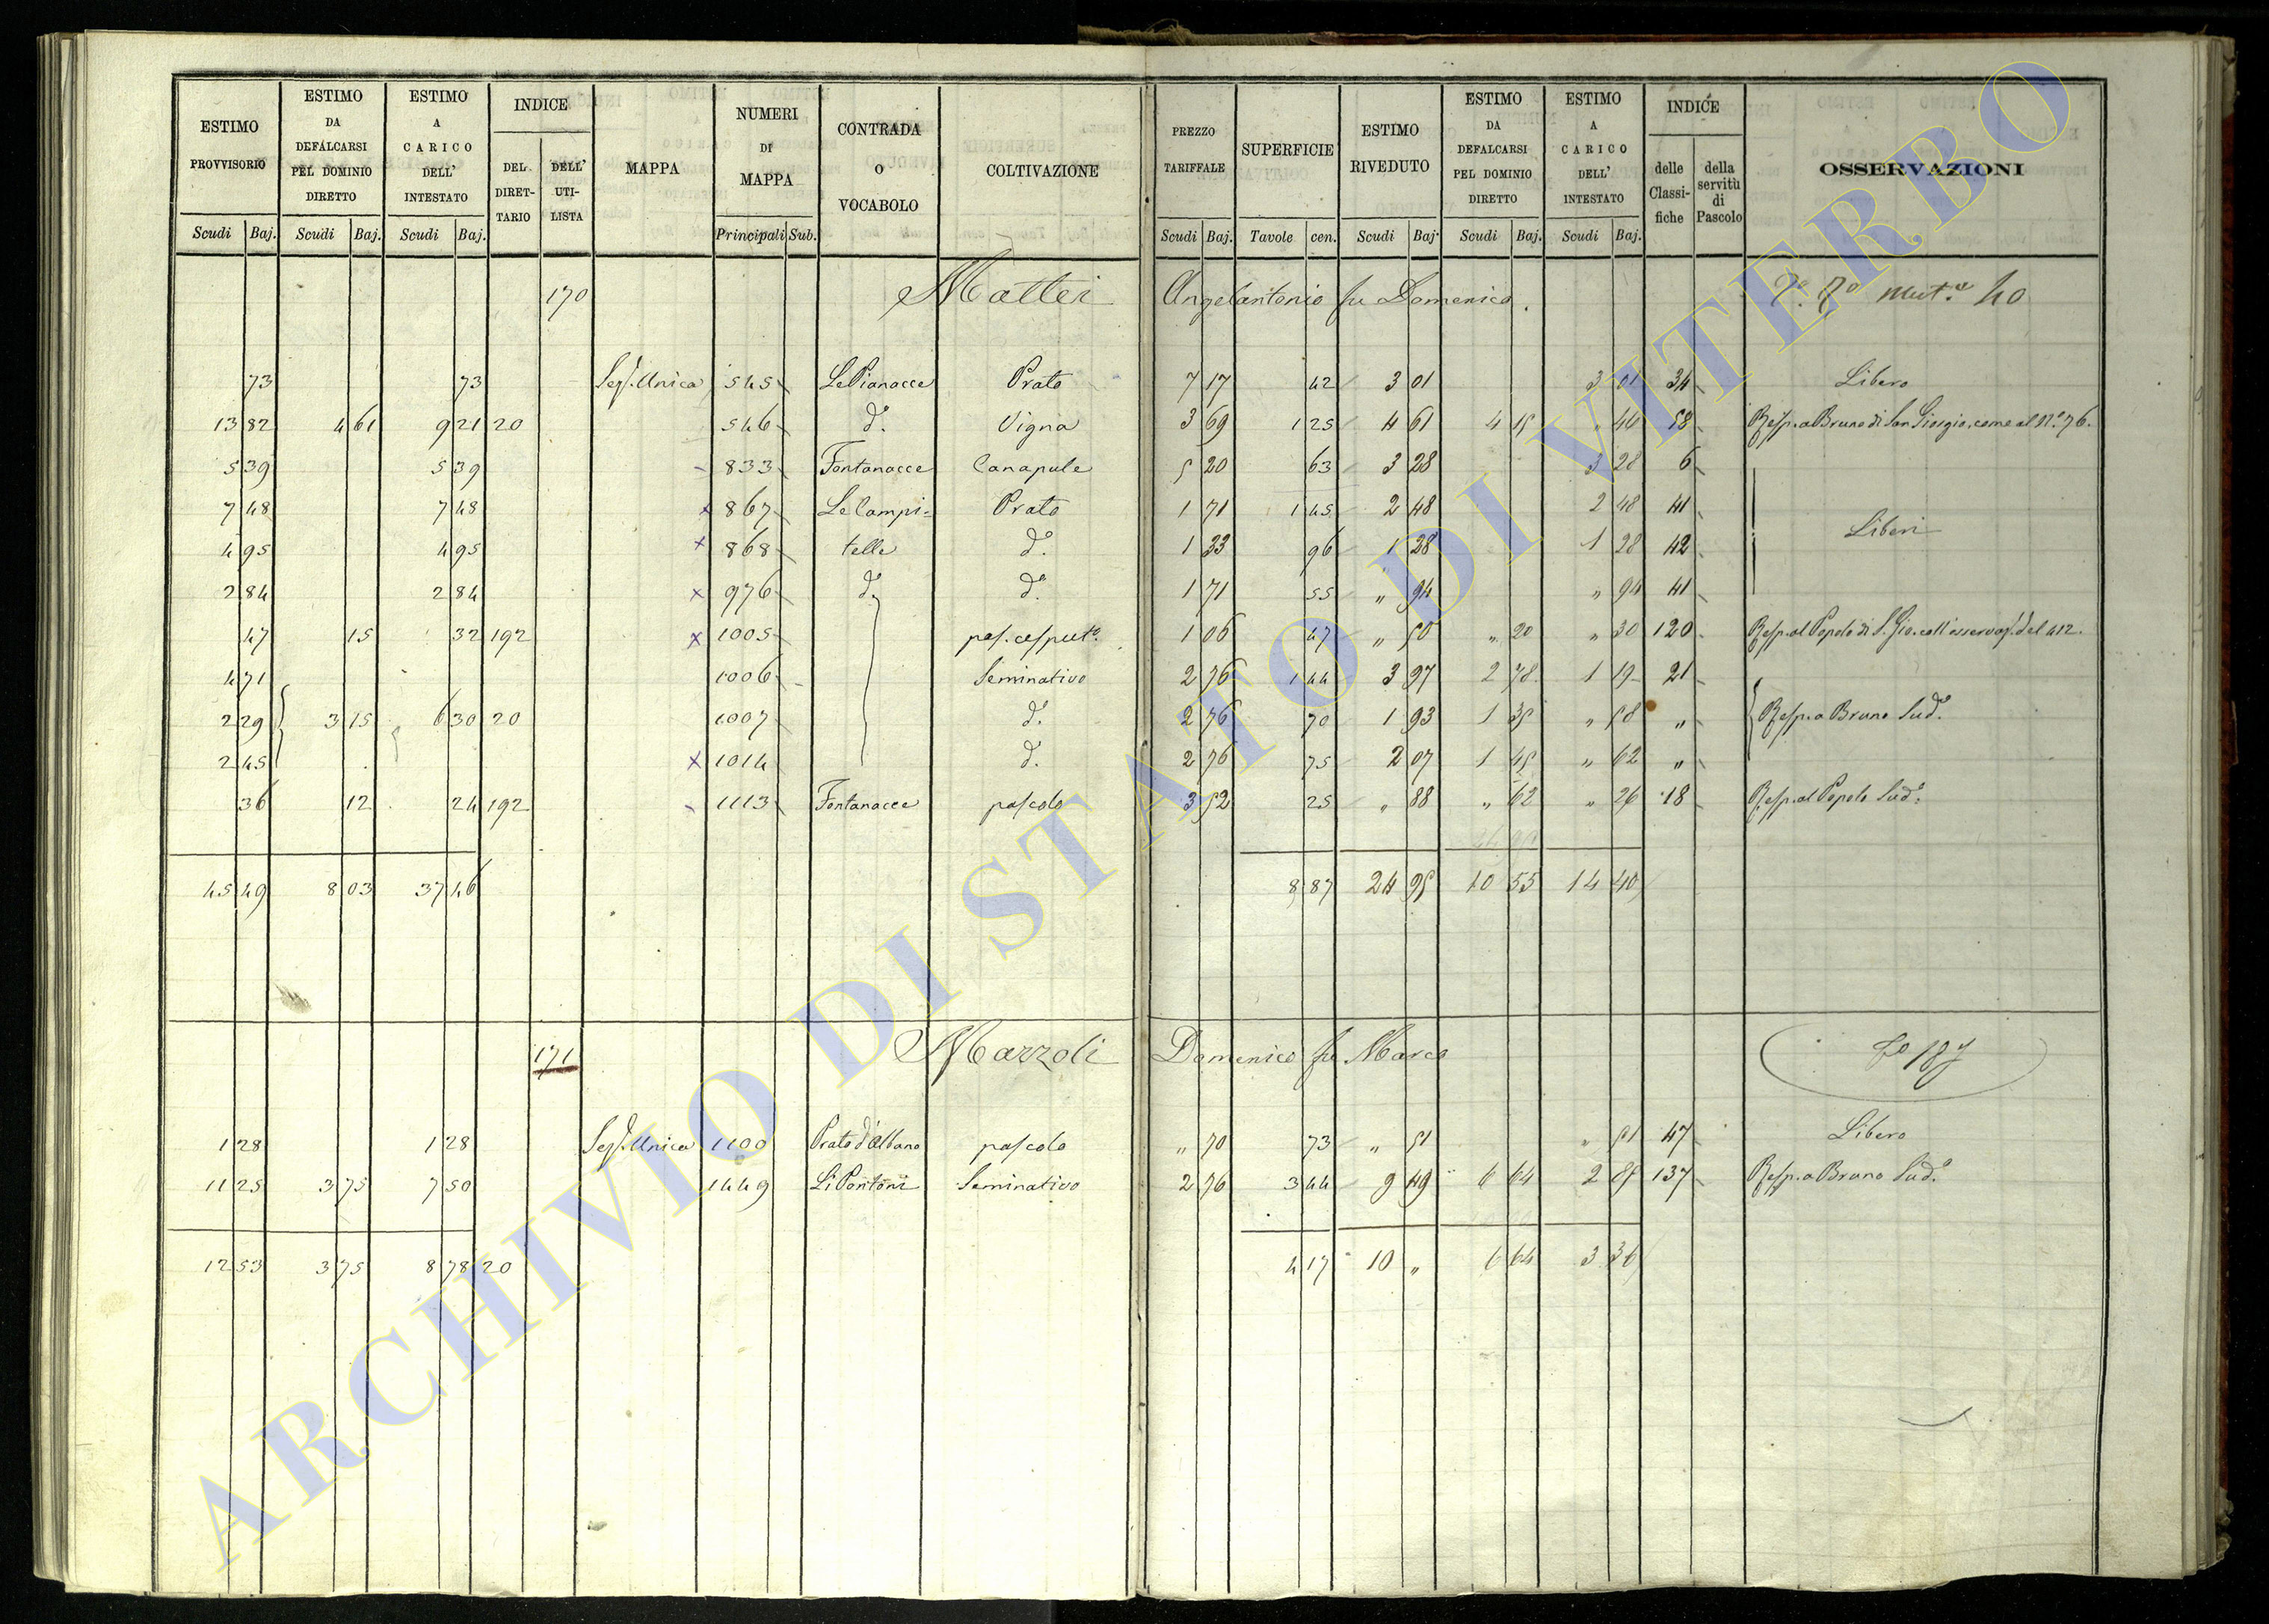 ESTIMO PROVVISORIO
ESTIMO DA DEFALCARSI PEL DOMINIO DIRETTO
ESTIMO A CARICO DELL' INTESTATO
INDICE
DEL DIRETTARIO
DELL' UTILISTA
MAPPA
NUMERI DI MAPPA
CONTRADA O VOCABOLO
COLTIVAZIONE
PREZZO TARIFFALE
SUPERFICIE
ESTIMO RIVEDUTO
ESTIMO DA DEFALCARSI PEL DOMINIO DIRETTO
ESTIMO A CARICO DELL' INTESTATO
INDICE
delle Classifiche
della servitù di Pascolo
OSSERVAZIONI
Scudi Baj. Scudi Baj. Scudi Baj. Principali Sub. Scudi Baj. Tavole cen. Scudi Baj. Scudi Baj. Scudi Baj.
170 Mattei Angelantonio fu Domenico. mut.e 40
73 73 Sez. Unica 545 Le Pianacce Prato 7 17 42 3 01 3 01 34 Libero
13 82 4 61 9 21 20 546 d.o Vigna 3 69 1 25 4 61 4 15 " 46 58 Resp. a Bruno di San Giorgio, come al N.o 76.
5 39 5 39 833 Fontanacce Canapule 5 20 63 3 28 3 28 6
7 48 7 48 867 Le Campi= Prato 1 71 1 45 2 48 2 48 41
Liberi
4 95 4 95 868 telle d.o 1 33 96 1 28 1 28 42
2 84 2 84 976 d.o d.o 1 71 55 " 94 " 94 41
47 15 32 192 1005 pas. cesput.o 1 06 47 " 50 " 20 " 30 120 Resp. al Popolo di S. Gio. coll'osservaz. del 412.
4 71 1006 Seminativo 2 76 1 44 3 97 2 78 1 19 21
2 29 3 15 6 30 20 1007 d.o 2 76 70 1 93 1 35 " 58 " Resp. a Bruno Sud.o
2 45 1014 d.o 2 76 75 2 07 1 45 " 62 "
36 12 24 192 1113 Fontanacce pascolo 3 52 25 " 88 " 62 " 26 18 Resp. al Popolo Sud.o
45 49 8 03 37 46 8 87 24 95 10 55 14 40
171 Marzoli Domenico fu Marco F.o 187
1 28 1 28 Sez. Unica 1100 Prato d'Albano pascolo " 70 73 " 51 " 51 47 Libero
11 25 3 75 7 50 1449 Li Pontoni Seminativo 2 76 3 44 9 49 6 64 2 85 137 Resp. a Bruno Sud.o
12 53 3 75 8 78 20 4 17 10 " 6 64 3 36
ARCHIVIO DI STATO DI VITERBO